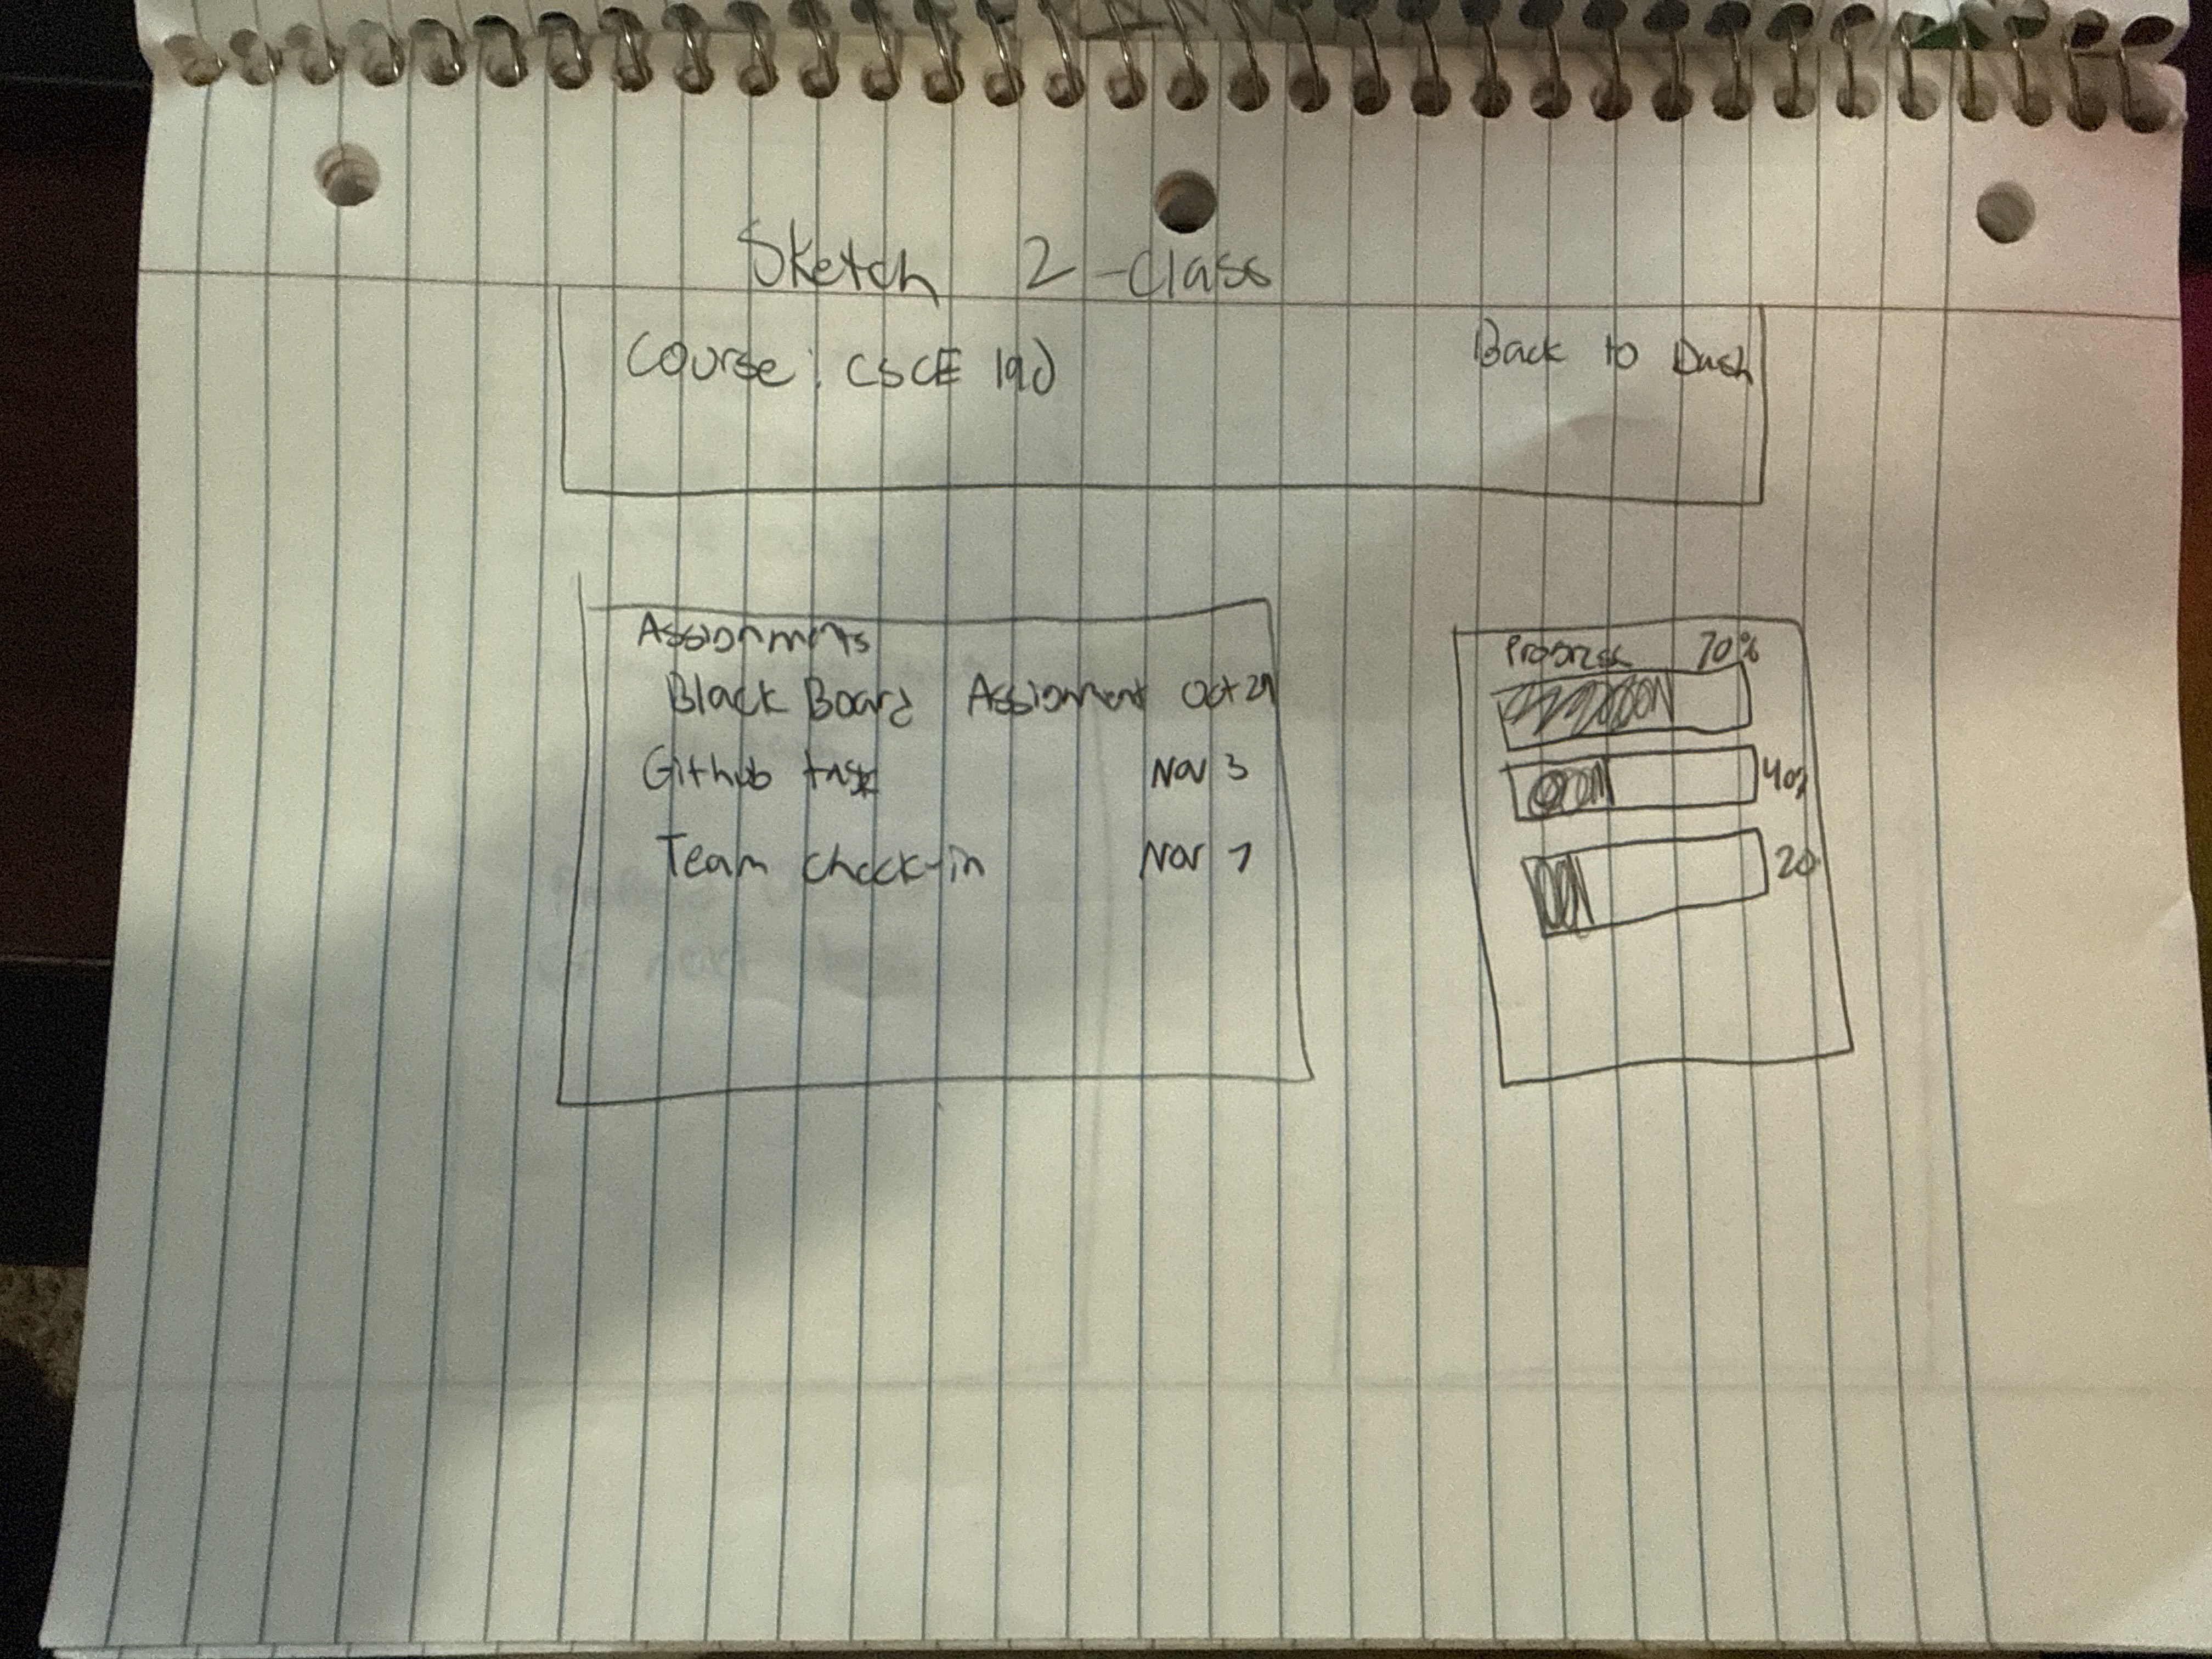 Sketch 2 - Class
Course: CSCE Back to Dash
Assignments
Black Board Assignment Oct
Github Nov 3
Team check-in Nov 7
Progress 70%
40%
20